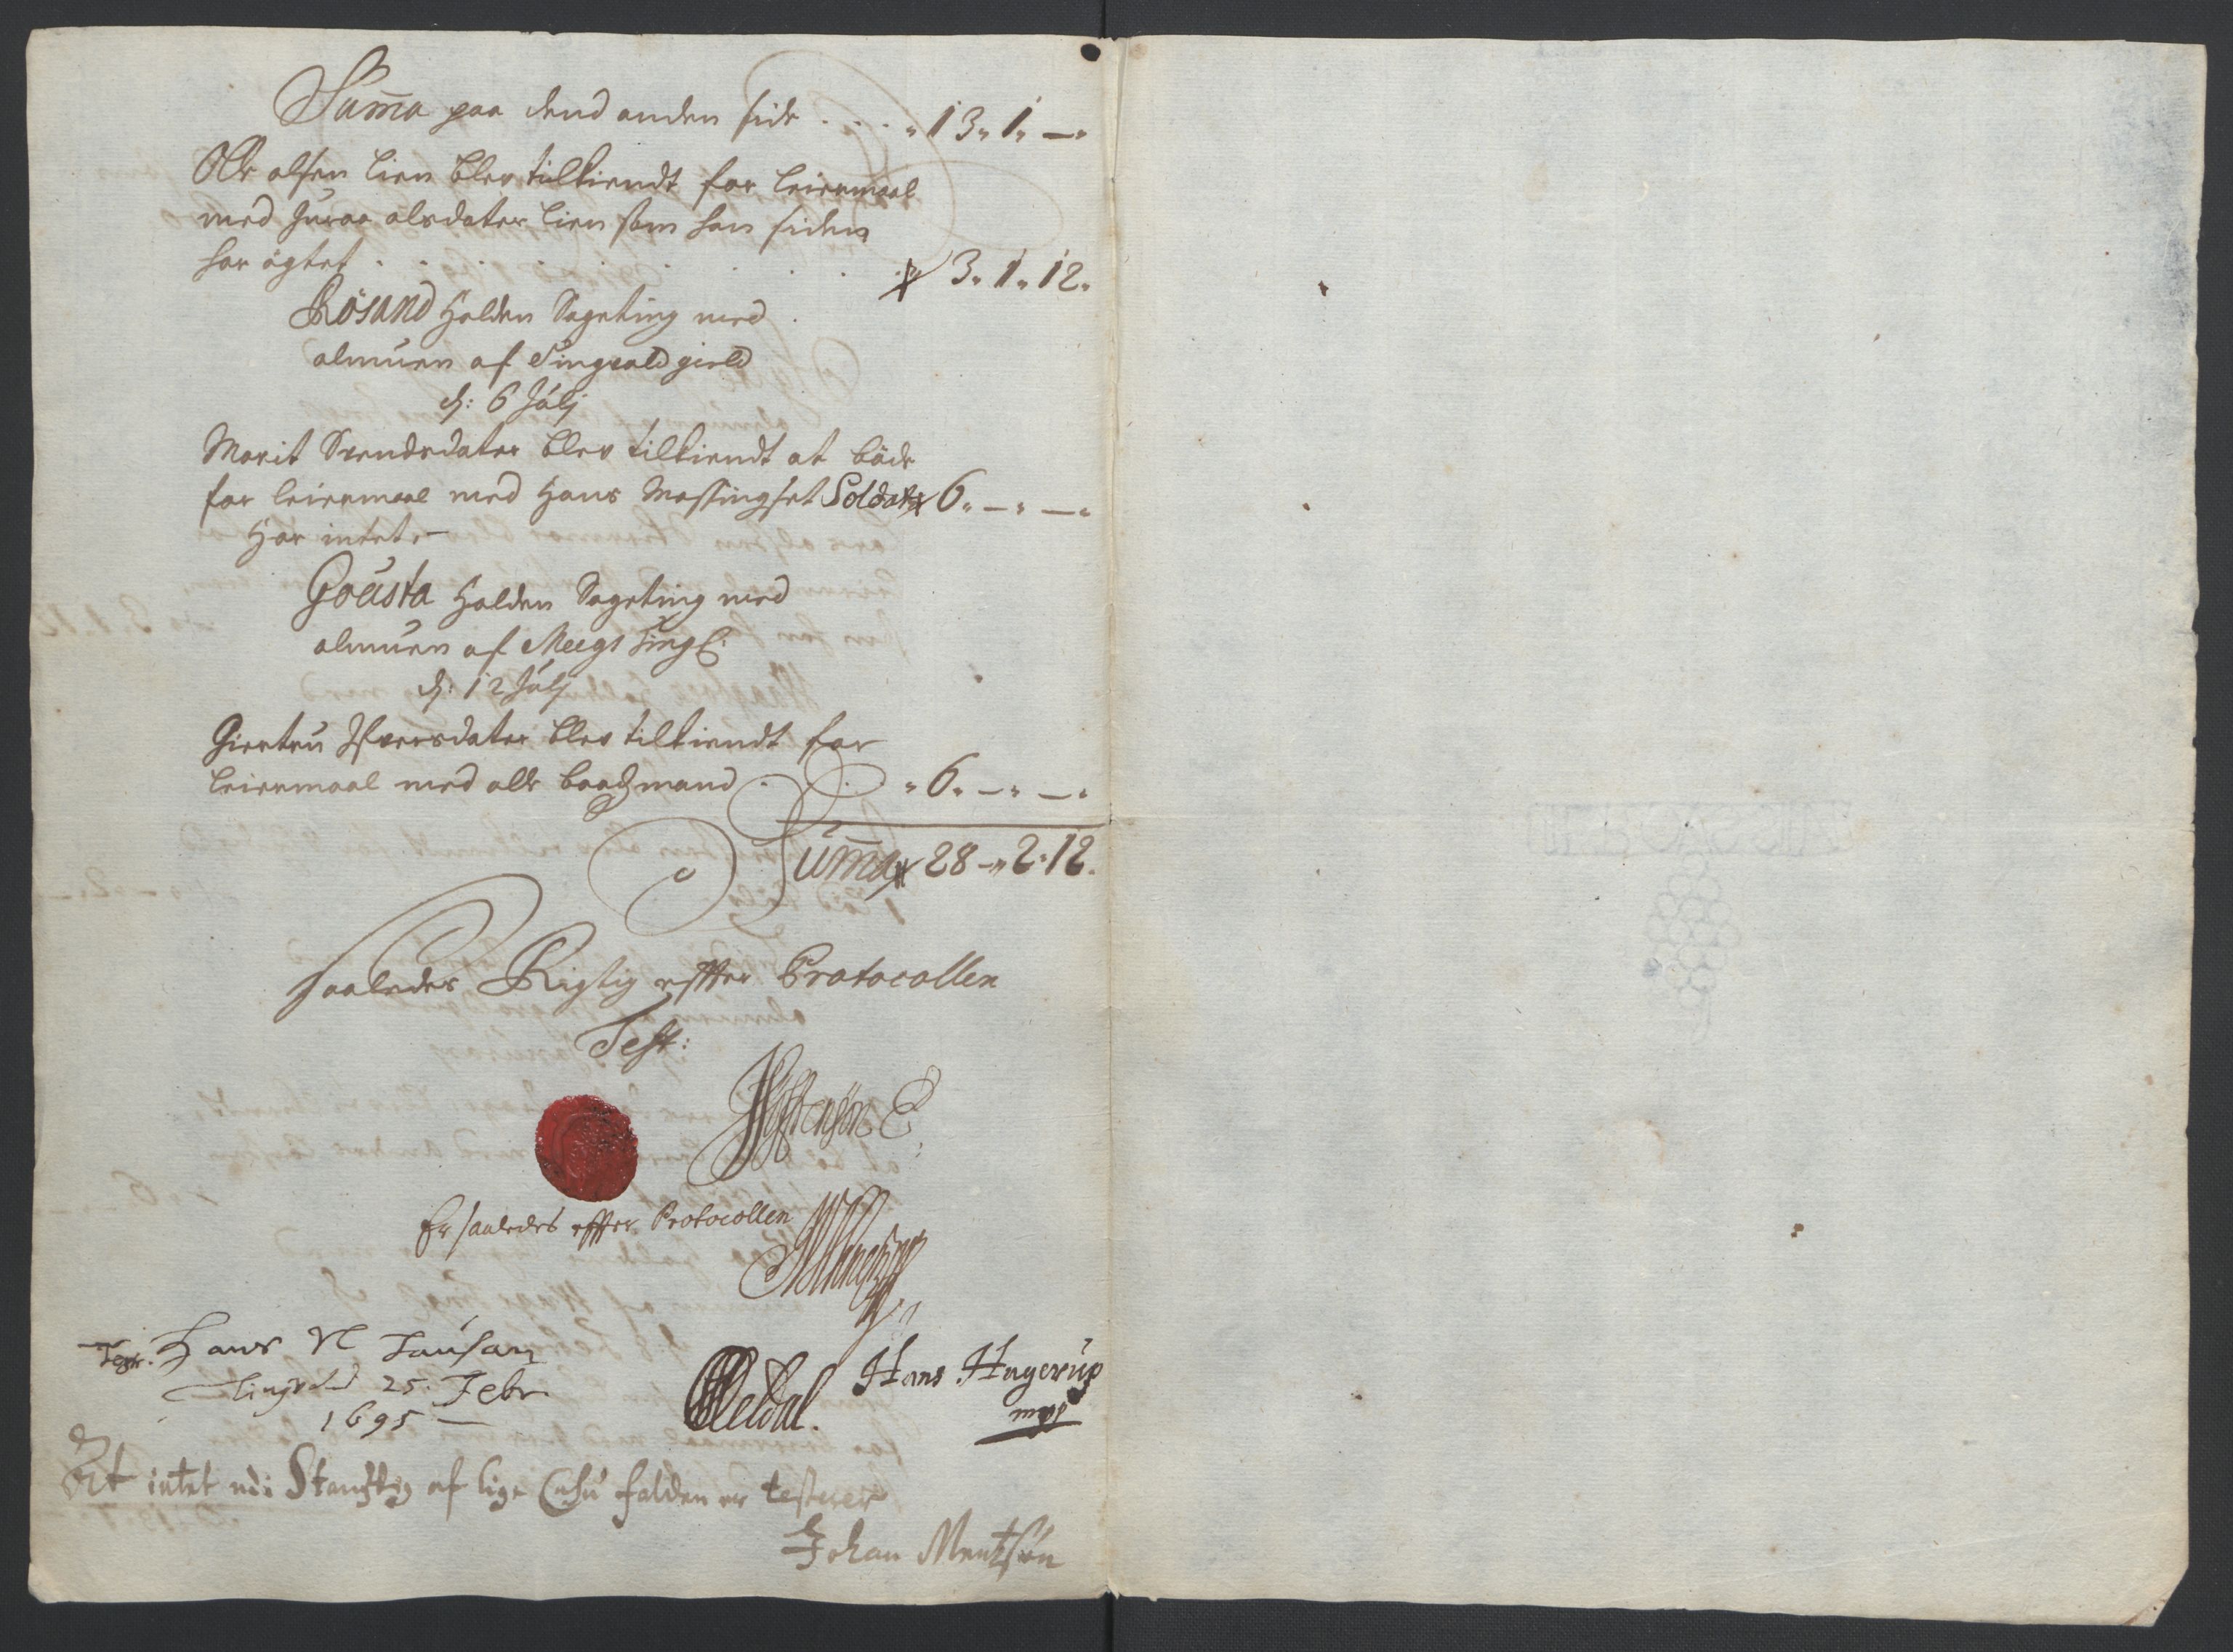 Summa paa dend anden side . . . . 13. 1. —.
Olle olsen Lien blev tilkiendt for leiermaal
med Guroe olsdater Lien som han siden
har ägtet . . . . . . 3. 1. 12.
Rösand Holden Sageting med
almuen af Tingvold gield
d: 6 Julj
Marit Svendsdater blev tilkiendt at böde
for leiermaal med Hans Massingset Soldat 6. —. —.
Har intet.
Gousta Holden Sageting med
almuen af Meegs Tingl.
d: 12 Julj
Giertru Iffversdater blev tilkiendt for
leiermaal med olle baadzmand . . . 6. —. —.
Summa 28 — 2. 12.
saaledes Rigtig effter Protocollen
Test:
Er saaledes effter Protocollen
Test. Hans N Tausan
Tingvold 25. Febr.
1695
Hans Hagerup
mpp
At intet udi af lige falden er testerer
Johan Mentzsøn